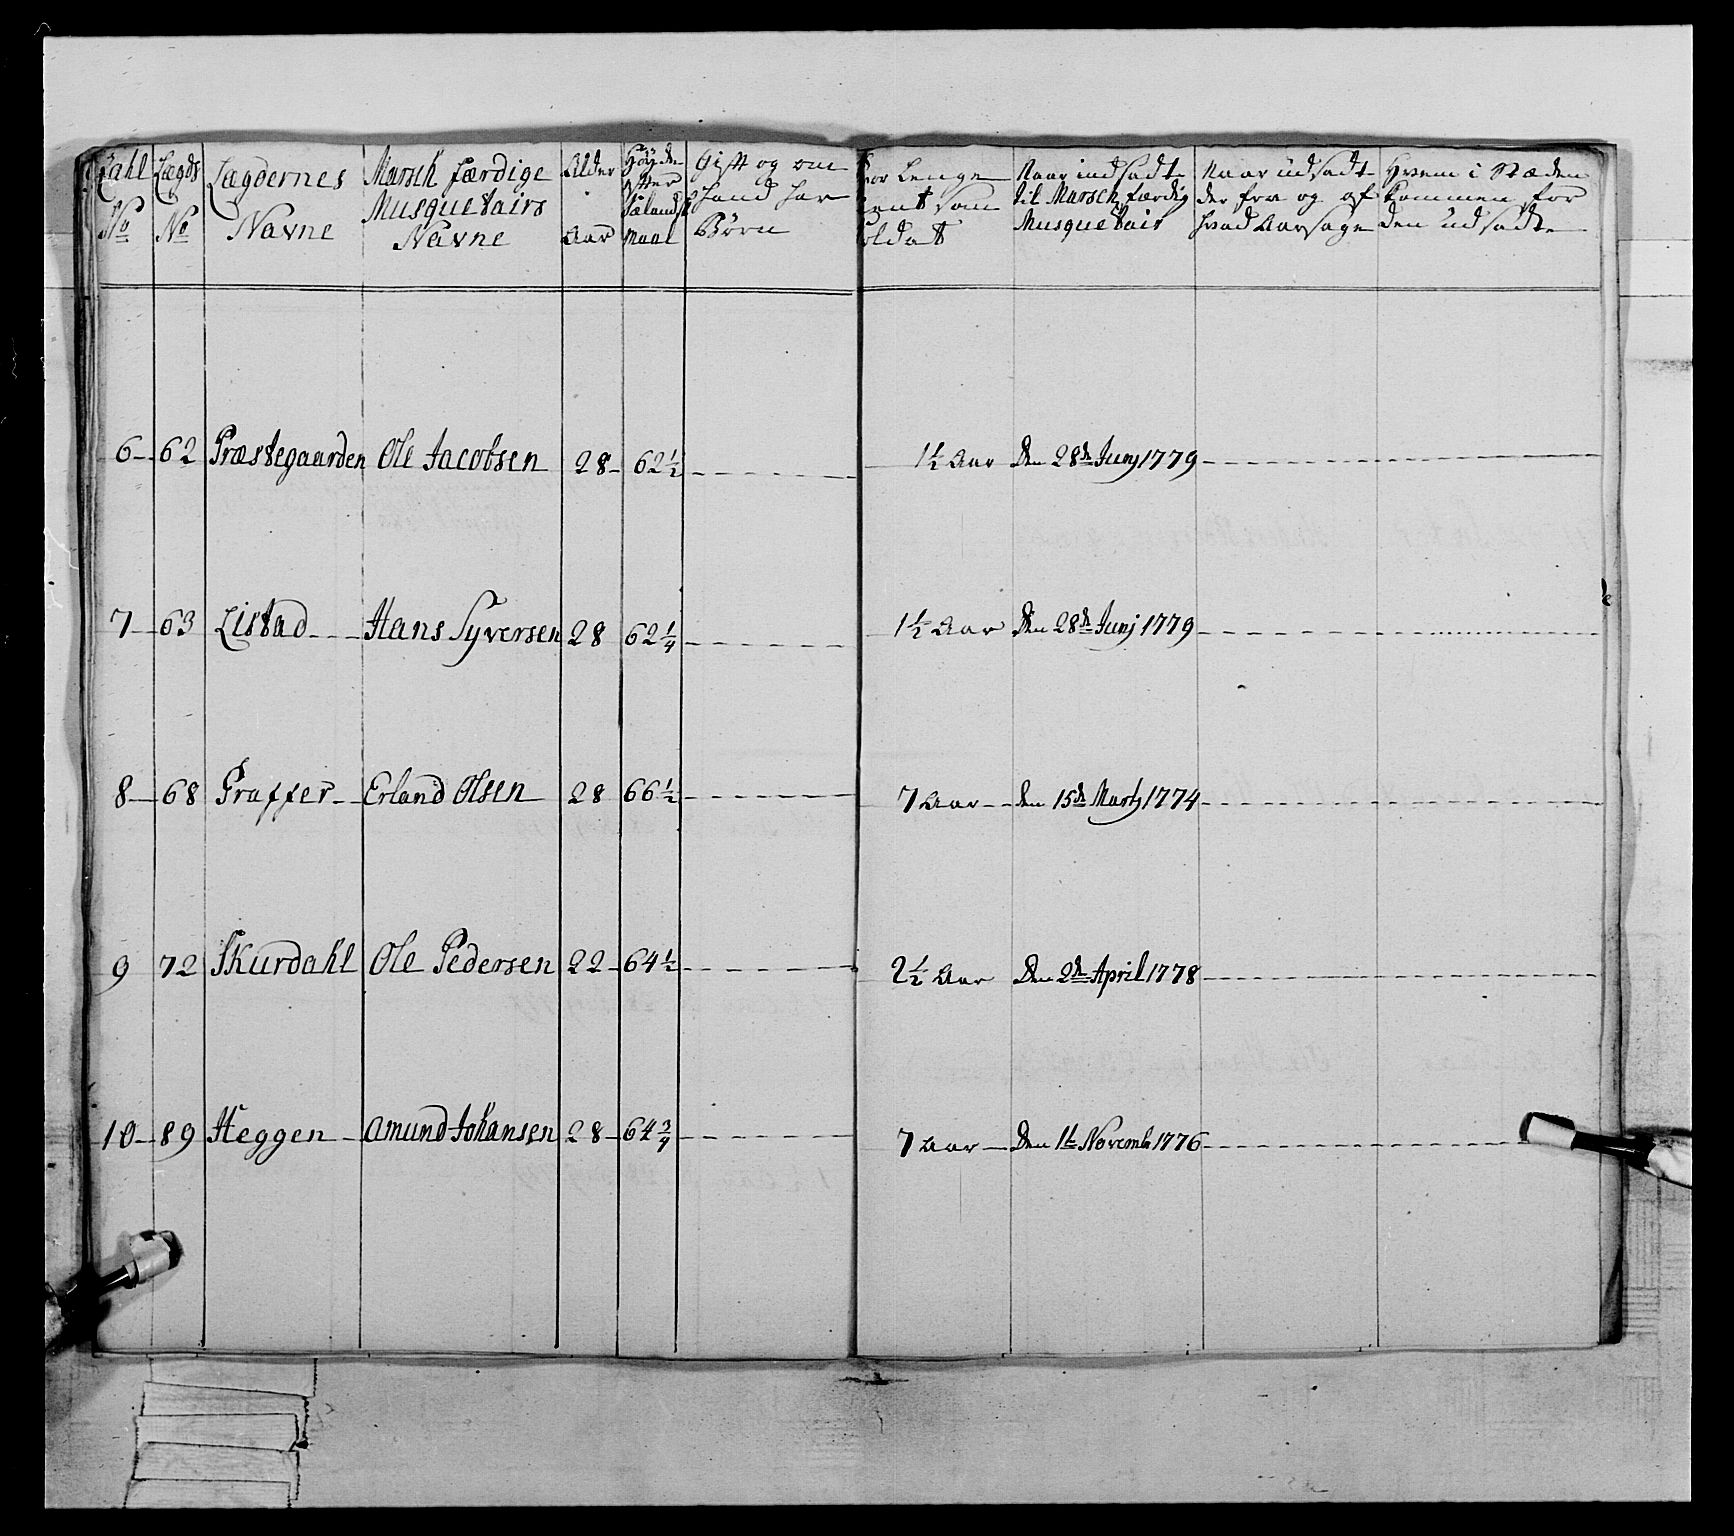 Tahl No | Lægds No | Lægdernes Navne | Marsch færdige Musquetairs Navne | Alder Aar | Høyde efter Sælands Maal | Gift og om hand har Børn | hvor Lenge tient som Soldat | Naar indsadt til Marsch færdig Musquetair | Naar udsadt der fra og af hvad Aarsage | Hvem i Stæden kommen for den udsadte
6 | 62 | Præstegaarden | Ole Jacobsen | 28 | 62½ | | 1½ Aar | Den 28de Junj 1779
7 | 63 | Listad | Hans Syversen | 28 | 62¼ | | 1½ Aar | Den 28de Junj 1779
8 | 68 | Praffer | Erland Olsen | 28 | 66½ | | 7 Aar | den 15de Martj 1774
9 | 72 | Skurdahl | Ole Pedersen | 22 | 64½ | | 2½ Aar | Den 2de April 1778
10 | 89 | Heggen | Amund Johansen | 28 | 64¾ | | 7 Aar | Den 1te Novembr 1776